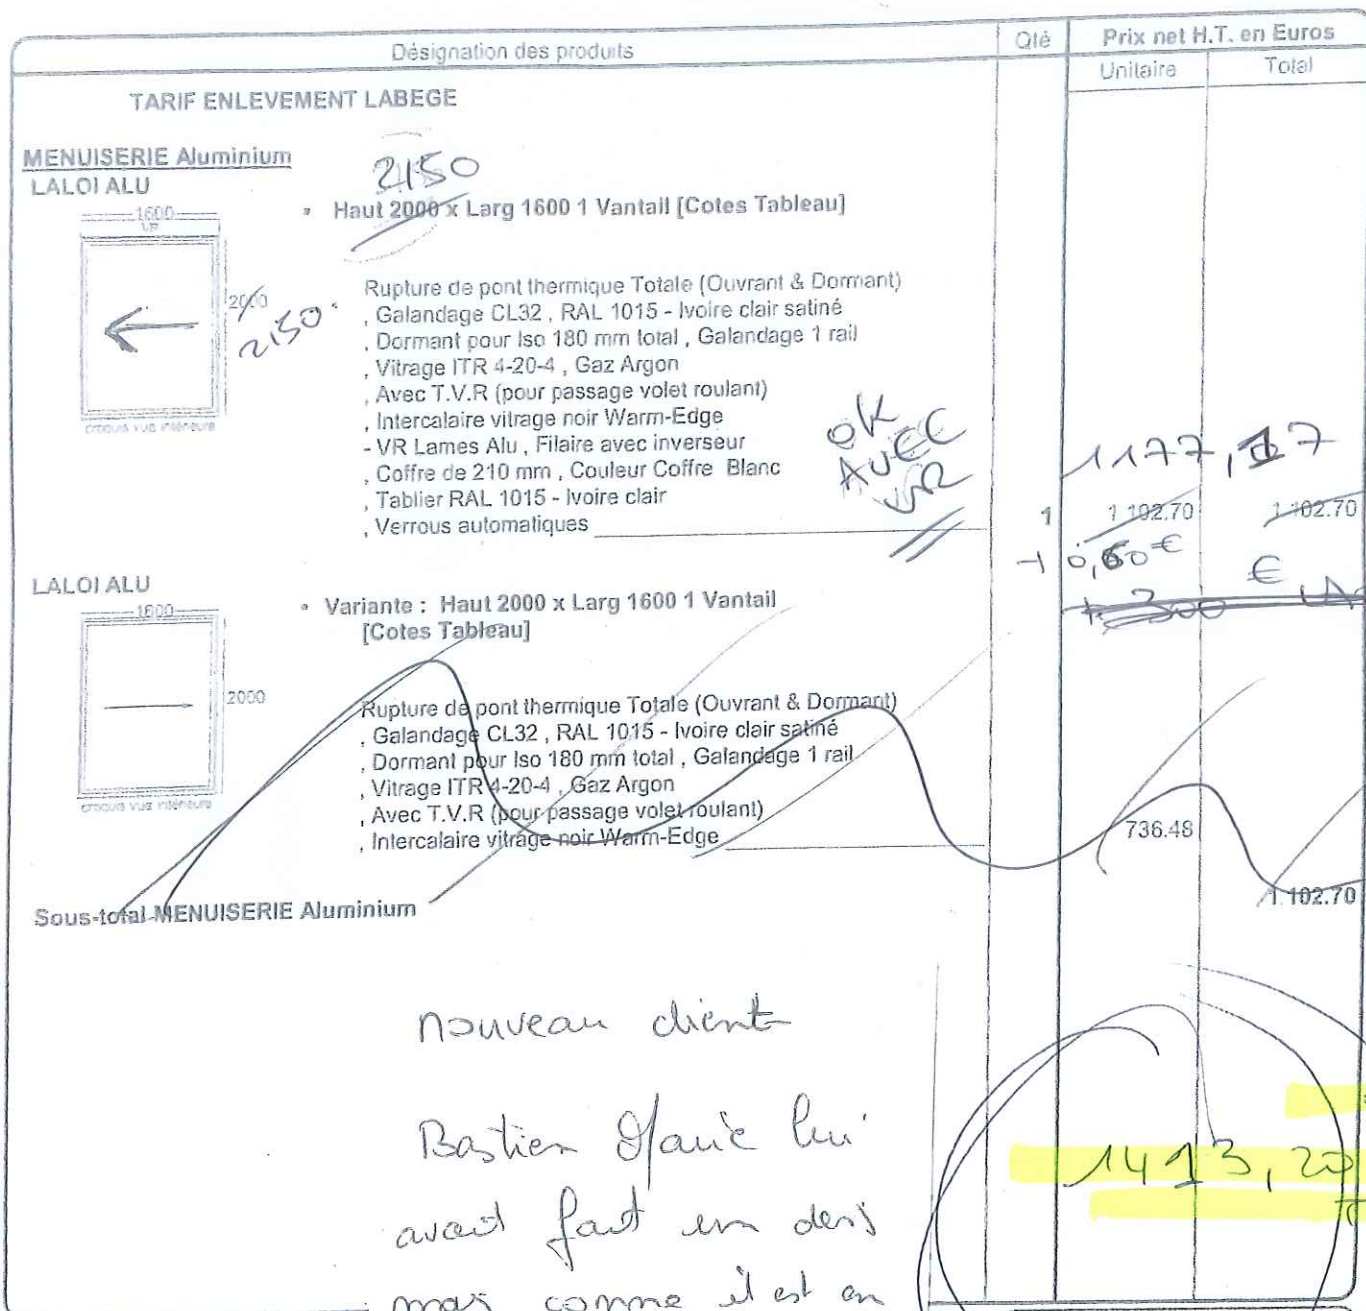 Désignation des produits
Qté
Prix net H.T. en Euros
Unitaire
Total
TARIF ENLEVEMENT LABEGE
MENUISERIE Aluminium
LALOI ALU
2150
1600
VR
2000
2150
croquis vue intérieure
• Haut 2000 x Larg 1600 1 Vantail [Cotes Tableau]
Rupture de pont thermique Totale (Ouvrant & Dormant)
, Galandage CL32 , RAL 1015 - Ivoire clair satiné
, Dormant pour Iso 180 mm total , Galandage 1 rail
, Vitrage ITR 4-20-4 , Gaz Argon
, Avec T.V.R (pour passage volet roulant)
, Intercalaire vitrage noir Warm-Edge
- VR Lames Alu , Filaire avec inverseur
, Coffre de 210 mm , Couleur Coffre Blanc
, Tablier RAL 1015 - Ivoire clair
, Verrous automatiques
OK
AVEC
VR
1177,17
1 1 102.70 1 102.70
0,60 €
+ 300 €
LALOI ALU
1600
2000
croquis vue intérieure
• Variante : Haut 2000 x Larg 1600 1 Vantail
[Cotes Tableau]
Rupture de pont thermique Totale (Ouvrant & Dormant)
, Galandage CL32 , RAL 1015 - Ivoire clair satiné
, Dormant pour Iso 180 mm total , Galandage 1 rail
, Vitrage ITR 4-20-4 , Gaz Argon
, Avec T.V.R (pour passage volet roulant)
, Intercalaire vitrage noir Warm-Edge
736.48
Sous-total MENUISERIE Aluminium
1 102.70
nouveau client
Bastien lui
avait fait un devis
1413,20
mais comme il est en